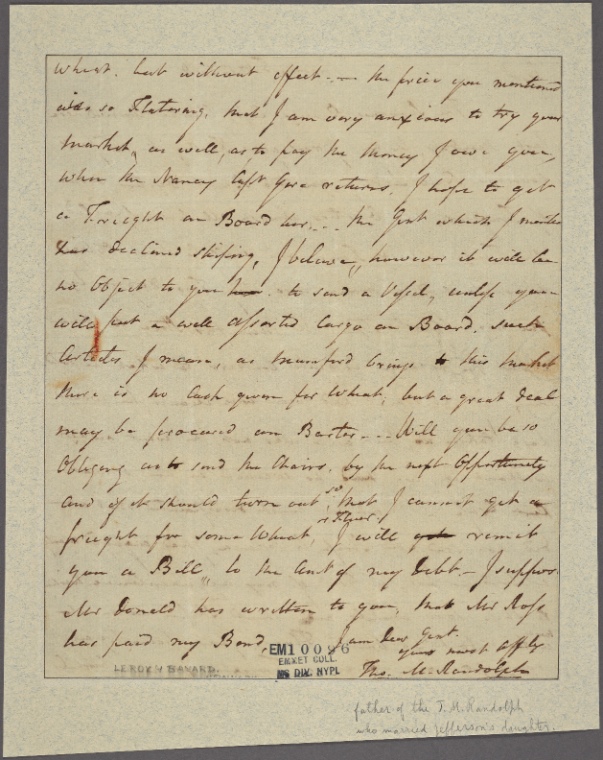 wheat. but without effect. — the price you mentioned
was so Flatering, that I am very anxious to try your
market, as well, as to pay the money I owe you,
when the Nancy Capt Gore returns, I hope to get
a Freight on Board her... the Gent which I
has declined shiping, I believe, however it will be
no Object to you to send a Vessel, unless you
will put a well Assorted Cargo on Board, such
Articles I mean, as mumford brings to this market
there is no Cash given for Wheat, but a great deal
may be procured on Barter... Will you be so
Obligeing as to send the Chairs, by the next Opportunity
and if it should turn out, so that I cannot get a
freight for some Wheat, or Flour, I will remit
you a Bill, to the amt of my Debt. — I suppose
Mr Donald has written to you, that Mr Ross
has paid my Bond, I am Dear Gent.
yours most Affly
Tho. M. Randolph
EM10096
EMMET COLL.
MS DIV. NYPL
LEROY & BAYARD.
father of the T. M. Randolph
who married Jefferson's daughter.